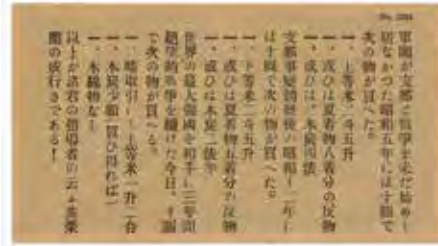 No. 2034
軍閥が支那と戰爭を未だ始めて
居なかつた昭和五年には十圓で
次の物が買へた。
一、上等米二斗五升
一、或ひは夏着物八着分の反物
一、或ひは、木炭四俵
支那事變勃發後の昭和十二年に
は十圓で次の物が買へた。
一、下等米二斗五升
一、或ひは夏着物五着分の反物
一、或ひは木炭二俵半
世界の最大强國を相手に三年間
絶望的戰爭を續けた今日、十圓
で次の物が買へる。
一、暗取引して上等米一升二合
一、木炭少額(買ひ得れば)
一、木綿物なし
以上が諸君の指導者の云ふ共榮
圈の成行きである!